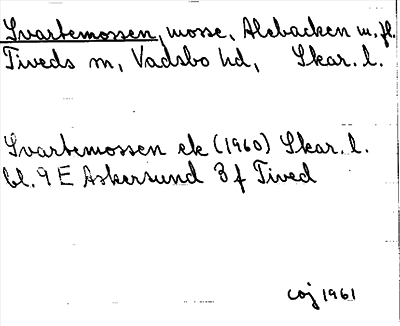 Svartemossen, mosse, Alebacken m. fl.
Tiveds sn, Vadsbo hd, Skar. l.
Svartemossen ek (1960) Skar. l.
bl. 9 E Askersund 3 f Tived
CoJ 1961